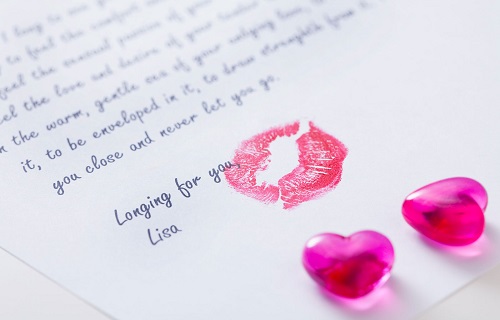 I long to see
to feel the
feel the sensual passion of your
feel the love and desire of your tender
in the warm, gentle sea of your undying love,
it, to be enveloped in it, to draw strength from it,
you close and never let you go.
Longing for you,
Lisa